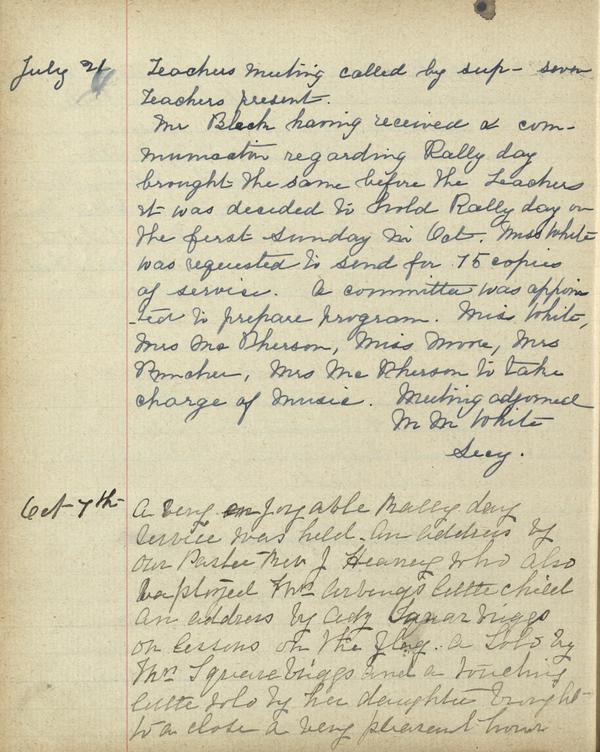 July 21 Teachers Meeting called by sup- seven
Teachers present.
Mr Black having received a com-
munication regarding Rally day
brought the same before the Teachers
it was decided to hold Rally day on
the first Sunday in Oct. Miss White
was requested to send for 75 copies
of service. A committee was appoin
-ted to prepare program. Miss White,
Mrs McPherson, Miss Moore, Mrs
Mrs McPherson to take
charge of Music. Meeting adjorned
M M White
Secy.
Oct 7th A very enjoyable Rally day
service was held. An address by
our Pastor Rev J Heaney who also
baptized Mrs little child
An address by Squar Griggs
on lessons on the flag. a Solo by
Mrs Squire Griggs and a touching
little solo by her daughter brought
to a close a very pleasent hour